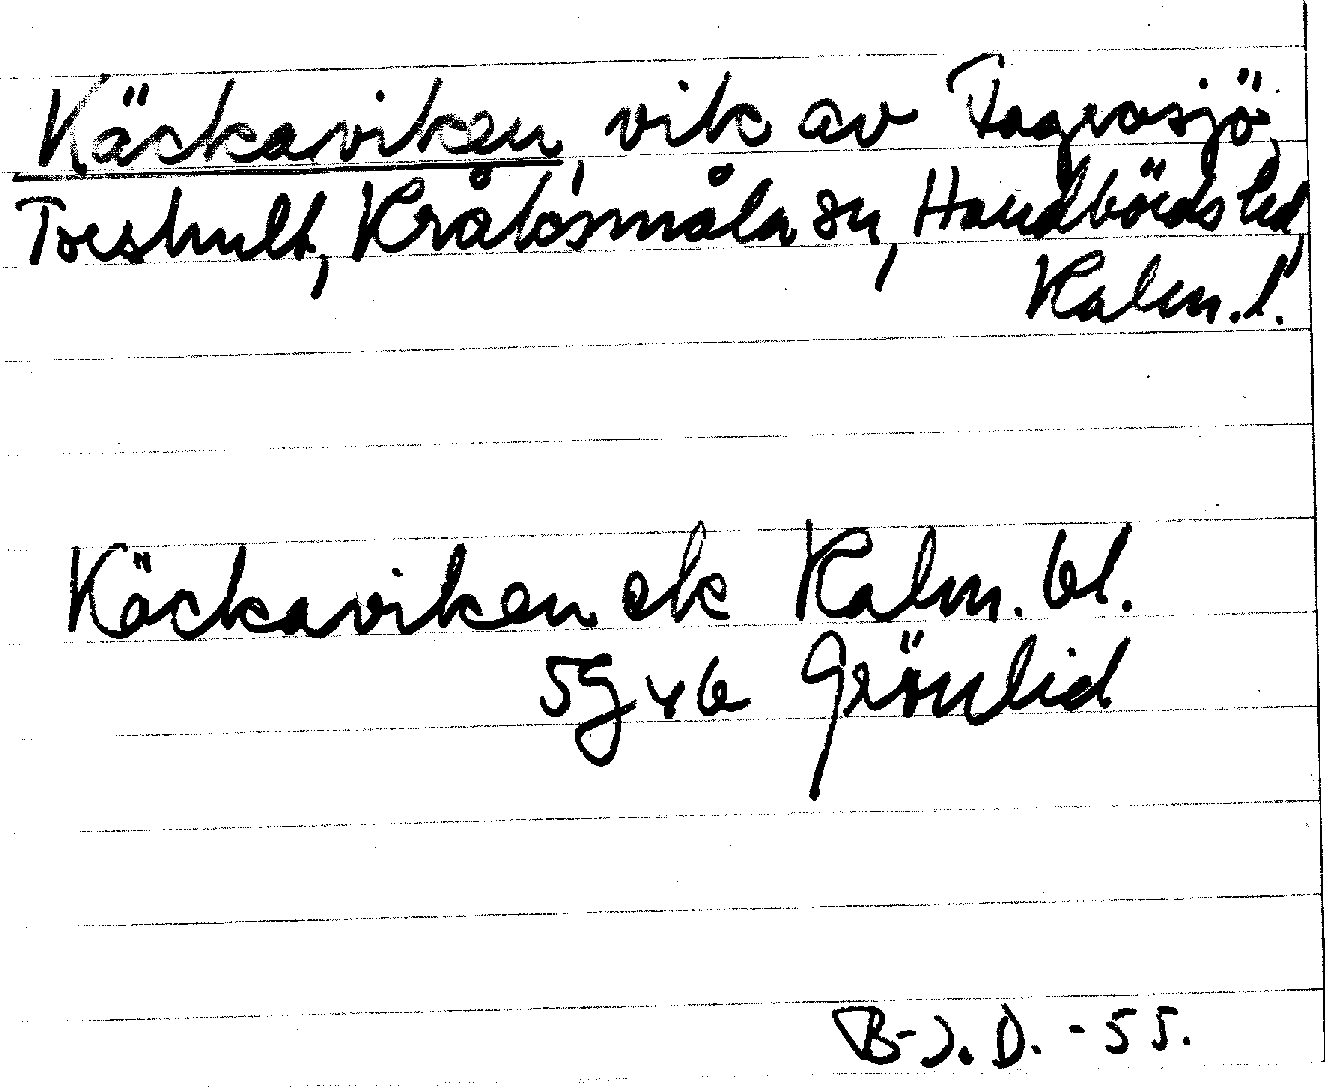 Käckaviken, vik av Tagevasjö,
Toeshult, Kråksmåla sn, Handbörds hd,
Kalm. l.
Käckaviken ek Kalm. bl.
5g v b Grönlid
B-J. D. -55.